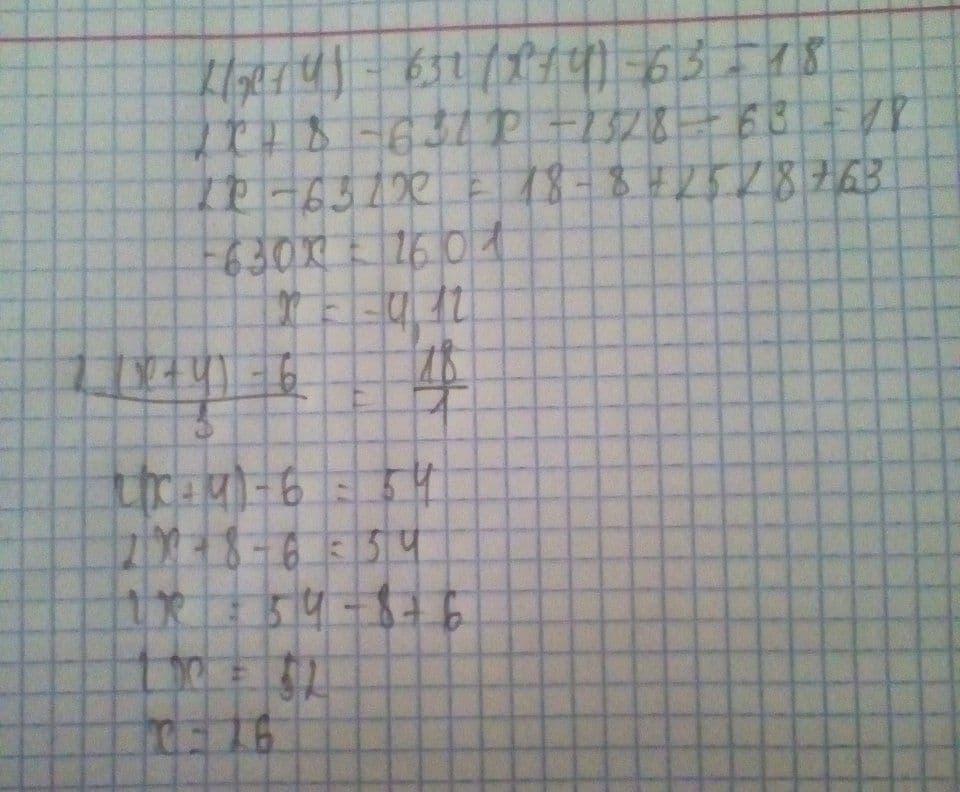 2(x+4) - 632(x+4) - 63 = 18
2x + 8 - 632x - 2528 - 63 = 18
2x - 632x = 18 - 8 + 2528 + 63
-630x = 2601
x = -4,12
2(x+4) - 6 / 3 = 18 / 1
2(x+4) - 6 = 54
2x + 8 - 6 = 54
2x = 54 - 8 + 6
2x = 52
x = 26